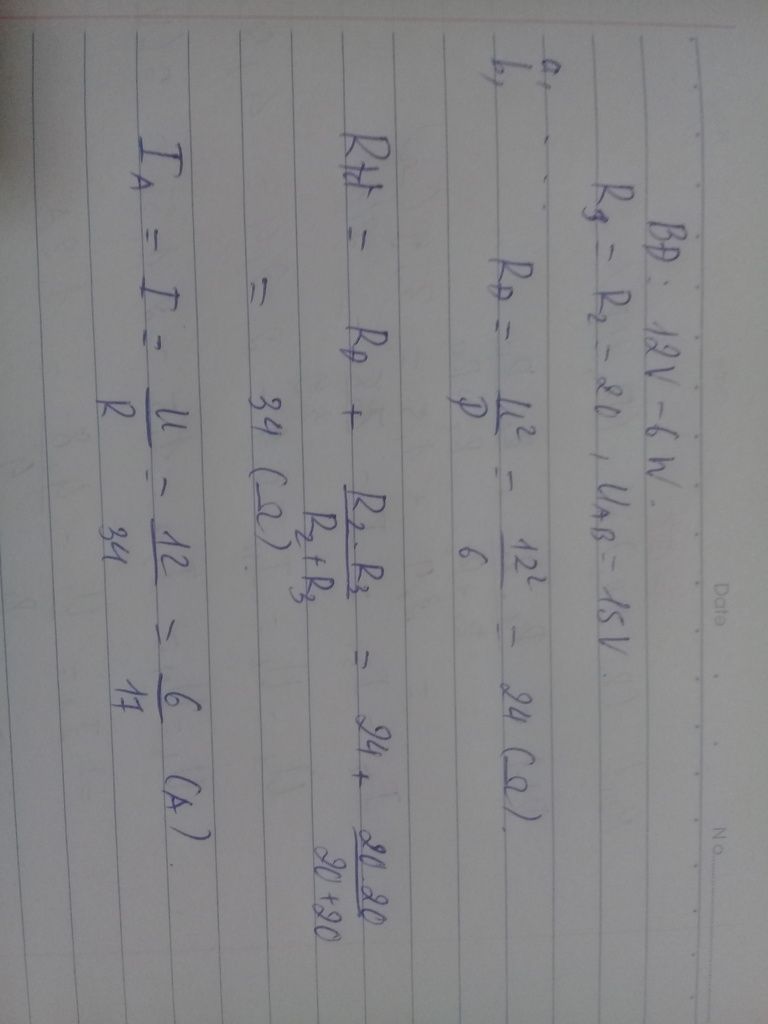 Date
No
BĐ: 12V - 6W.
R3 = R2 = 20, UAB = 15V.
a, . . .
b, RĐ = U²/P = 12²/6 = 24 (Ω).
Rtđ = RĐ + R2.R3/R2+R3 = 24 + 20.20/20+20
= 34 (Ω)
IA = I = U/R = 12/34 = 6/17 (A).